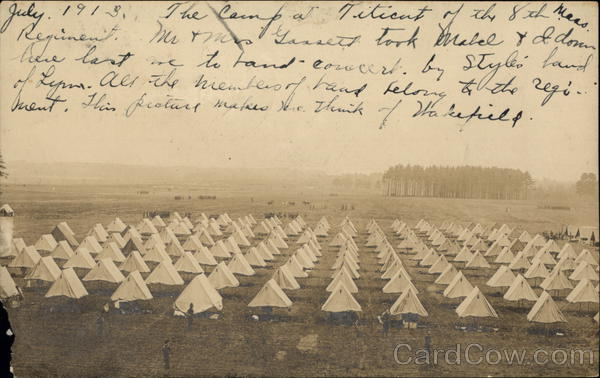 July. 1913. The Camp at Titicut of the 8th Mass.
Regiment. Mr & Mrs Gassett took Mabel & I down
here last eve to band-concert. by Styles' band
of Lynn. All the members of band belong to the regi-
ment. This picture makes me think of Wakefield.
CardCow.com